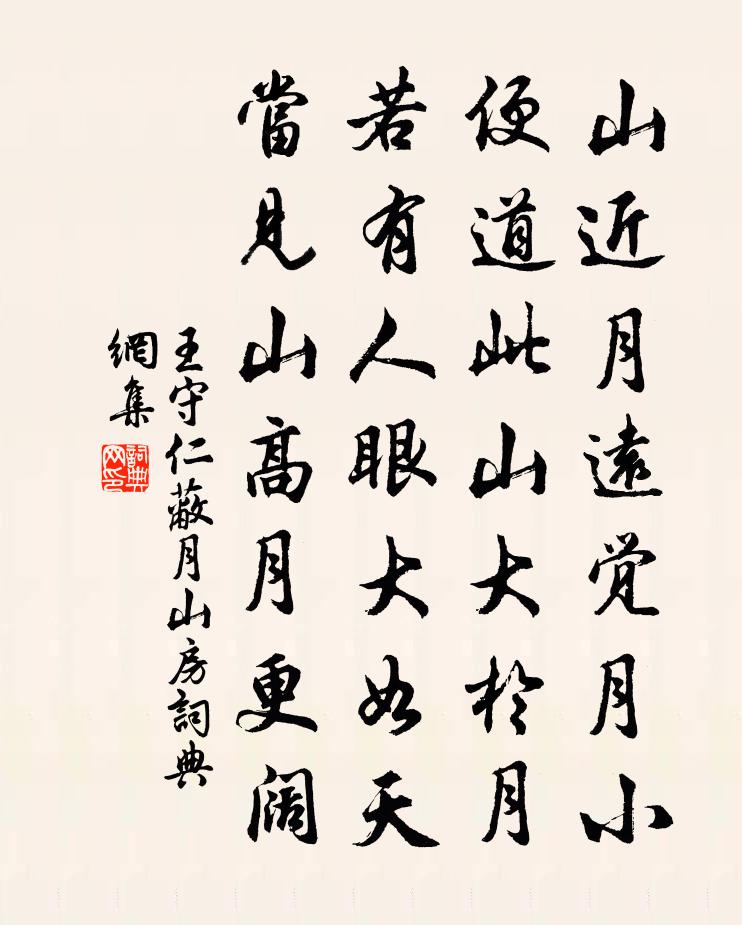 山近月遠觉月小
便道此山大於月
若有人眼大如天
當見山高月更阔
王守仁蔽月山房詞典
網集
詞典
网印